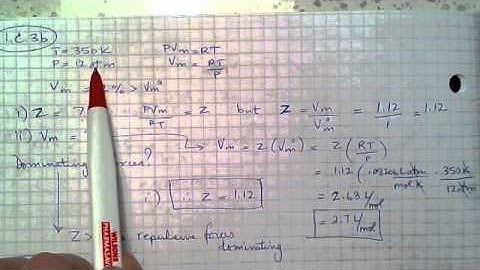 1.C.3b
T = 350K PVm = RT
P = 12 atm Vm = RT/P
Vm % > Vm°
i) Z = PVm/RT = Z but Z = Vm/Vm° = 1.12/1 = 1.12
ii) Vm = Vm = Z(Vm°) = Z(RT/P)
Dominating forces? = 1.12 (.08206 L atm/mol K · 350K/12 atm)
i) ∴ Z = 1.12 = 2.68 L/mol
= 2.7 L/mol
Z > repulsive forces
dominating
WILSONS
PHARMASAVE